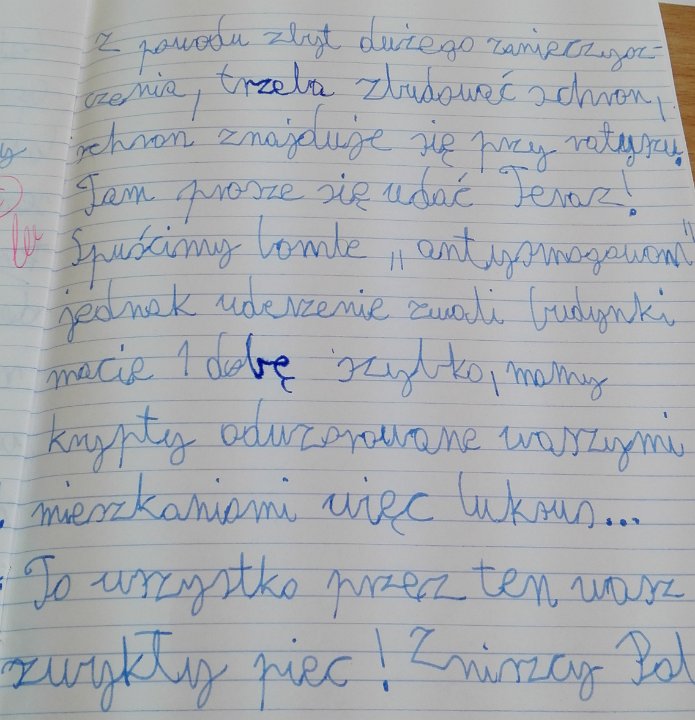 z powodu zbyt dużego zanieczysz-
czenia, trzeba zbudować schron,
schron znajduje się przy ratuszu.
Tam prosze się udać Teraz!
Spuścimy bombe „antysmogowom"
jednak uderzenie zwali budynki
macie 1 dobę szybko, mamy
krypty odwzorowane waszymi
mieszkaniami więc luksus...
To wszystko przez ten wasz
zwykły piec! Zniszczy Pol